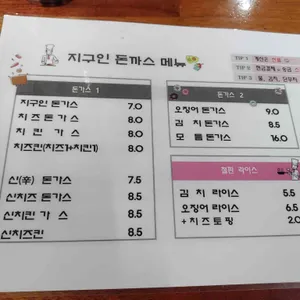 지구인 돈까스 메뉴
TIP 1
TIP 2
TIP 3
돈까스 1
지구인 돈가스 7.0
치즈돈가스 8.0
치킨가스 8.0
치즈킨(치즈1+치킨1) 8.0
신(辛) 돈가스 7.5
신치즈 돈가스 8.5
신치킨 가스 8.5
신치즈킨 8.5
돈가스 2
오징어 돈가스 9.0
김치 돈가스 8.5
모둠돈가스 16.0
철판 라이스
김치 라이스 5.5
오징어라이스 6.5
+치즈토핑 2.0